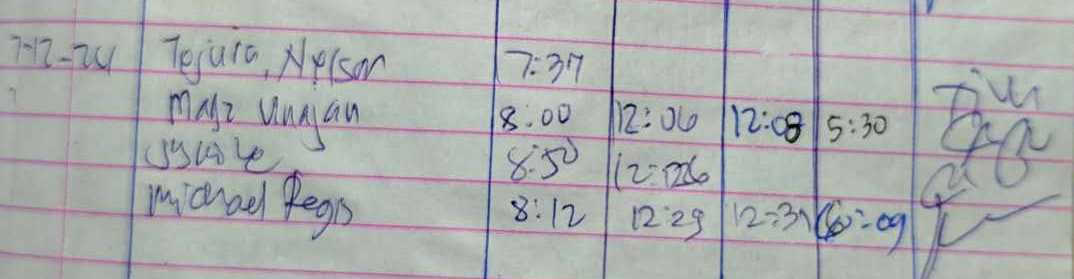 7-12-24 Tejura, Nelson 7:37
Unajan 8:00 12:06 12:08 5:30
8:50 12:26
Michael Regis 8:12 12:29 12:31 6:09